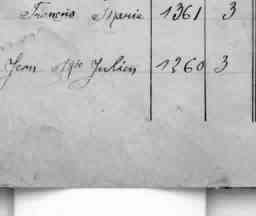 François Marie 1361 3
Jean Mie Julien 1360 3